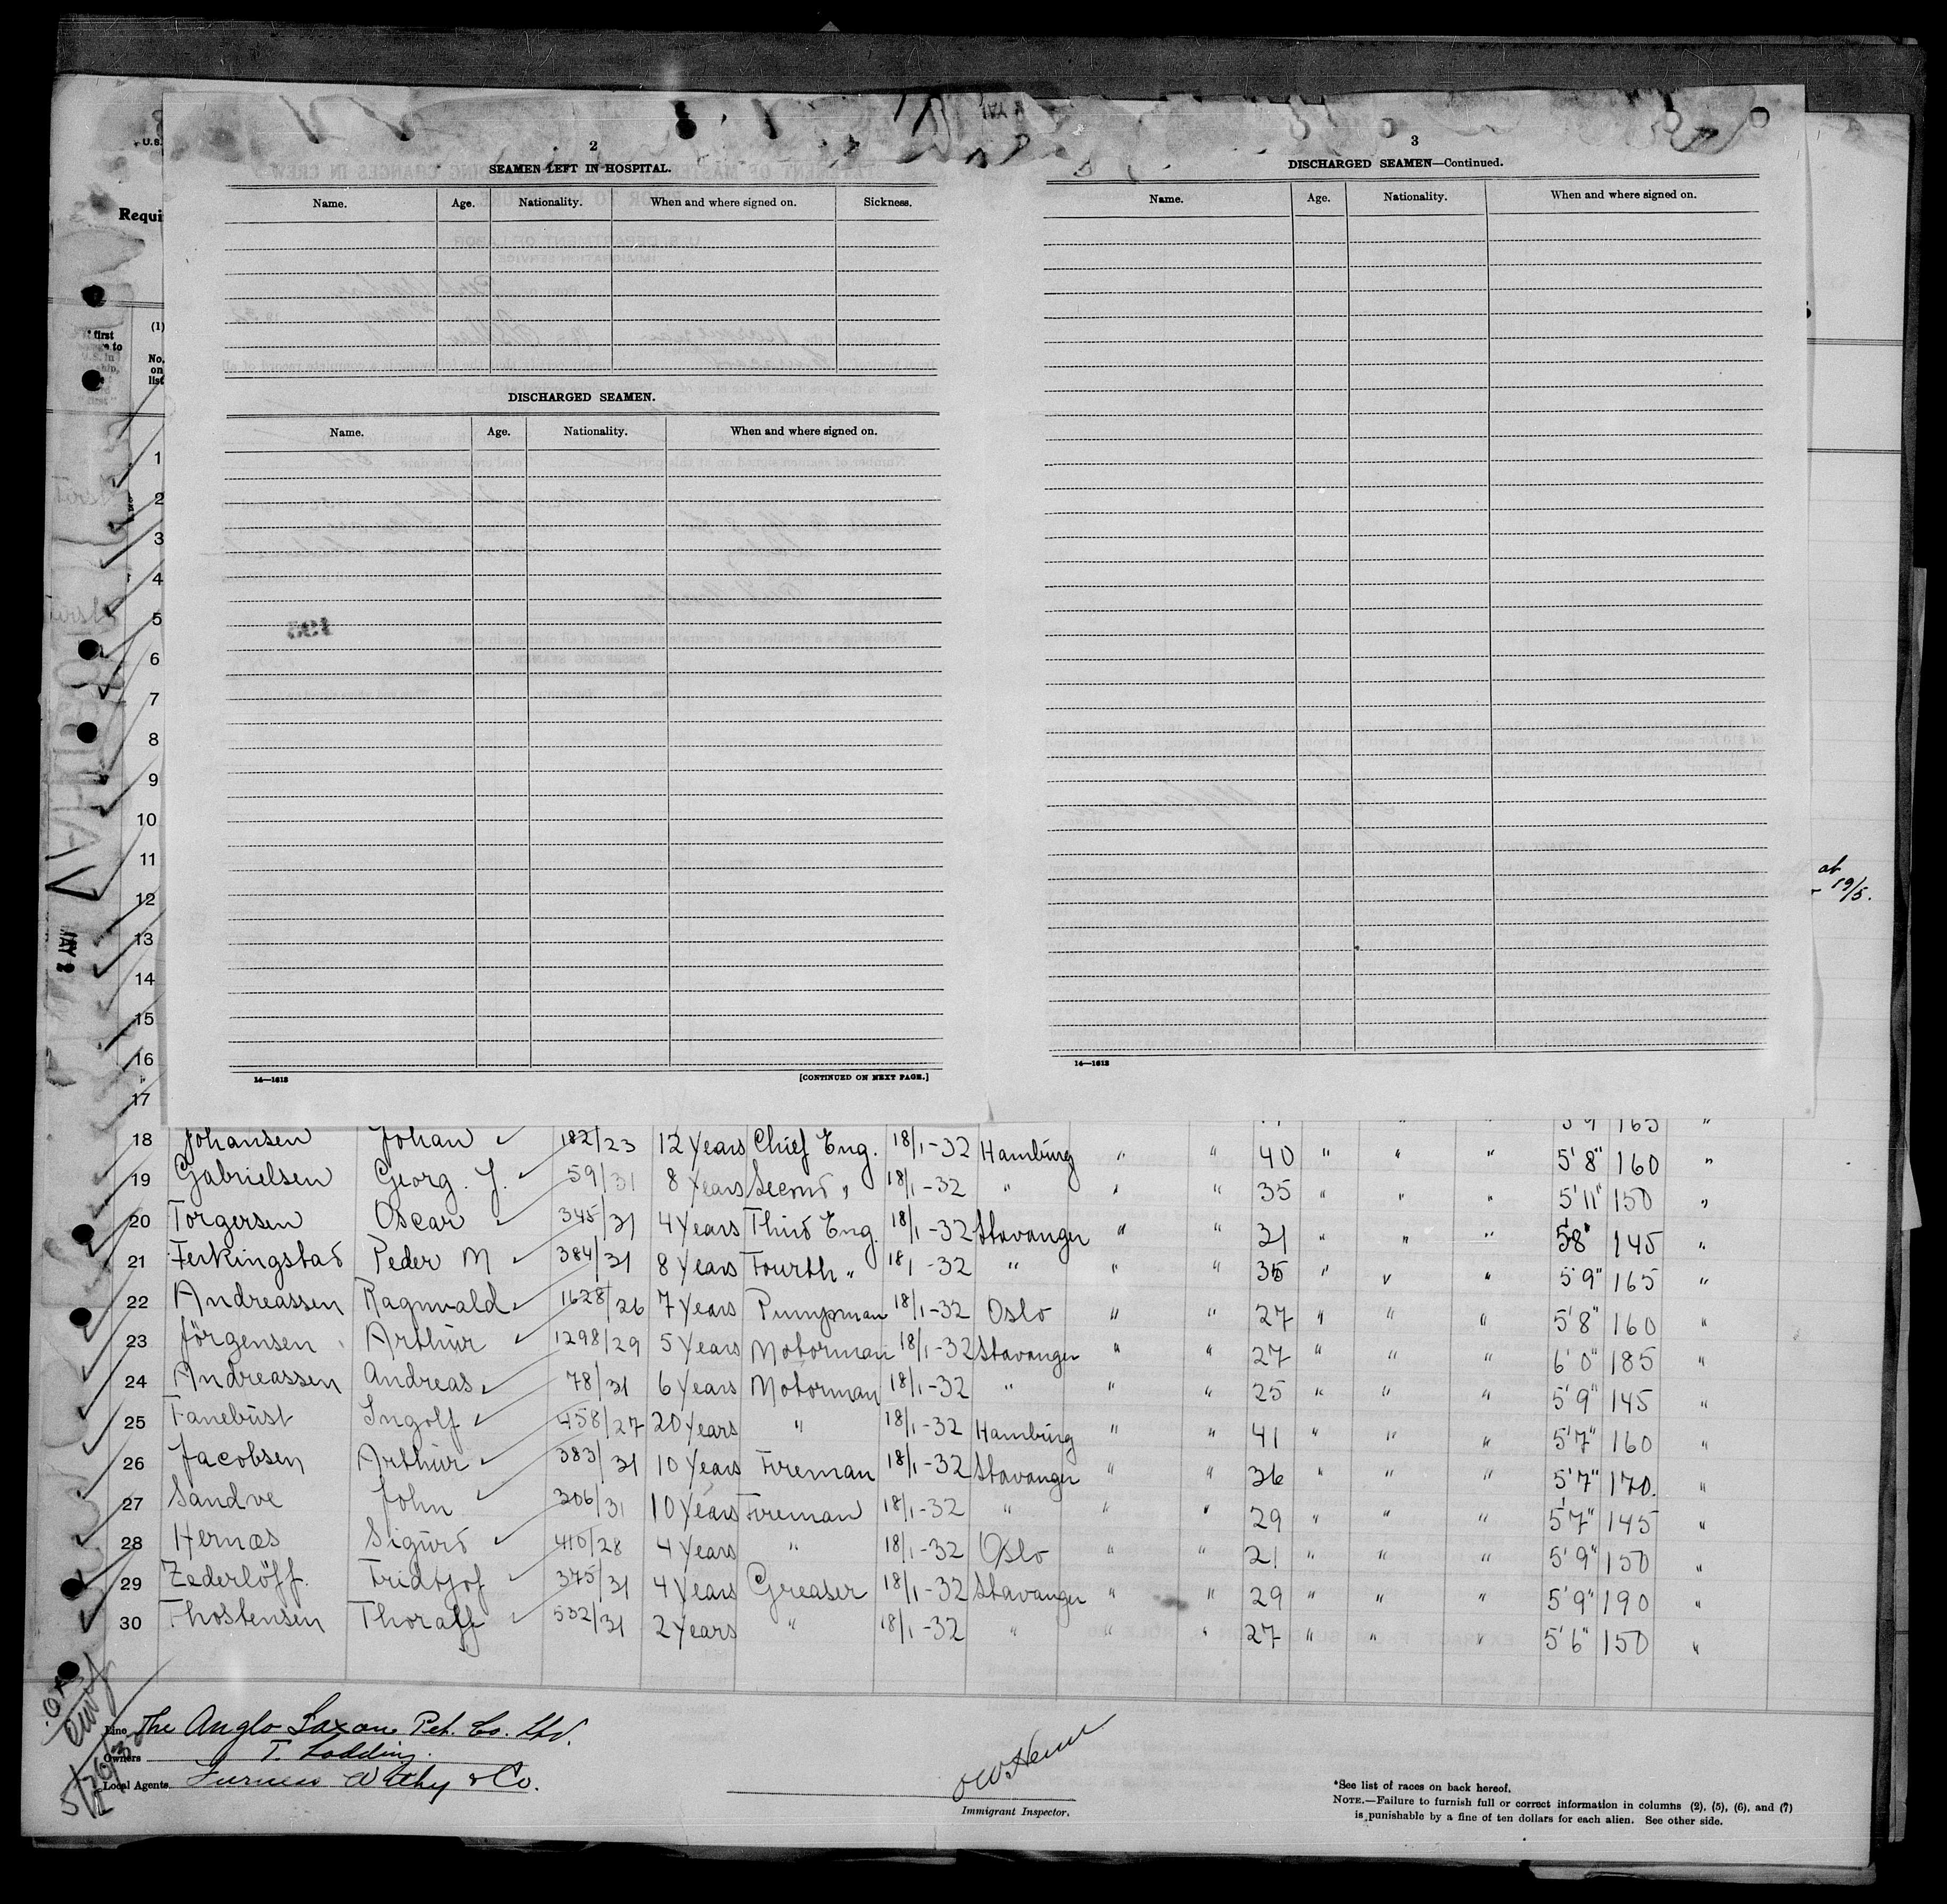 U.S.
Requi
2
SEAMEN LEFT IN HOSPITAL.
Name. Age. Nationality. When and where signed on. Sickness.
DISCHARGED SEAMEN.
Name. Age. Nationality. When and where signed on.
14—1613
[CONTINUED ON NEXT PAGE.]
3
DISCHARGED SEAMEN—Continued.
Name. Age. Nationality. When and where signed on.
14—1613
(1)
No.
on
list
1
2
3
4
5
6
7
8
9
10
11
12
13
14
15
16
17
at
19/5.
MAY 2
18 Johansen Johan ✓ 182/23 12 Years Chief Eng. 18/1-32 Hamburg " " 40 " " " 5'8" 160 "
19 Gabrielsen Georg. J. ✓ 59/31 8 Years Second " 18/1-32 " " " 35 " " " 5'11" 150 "
20 Torgersen Oscar ✓ 345/31 4 Years Third Eng. 18/1-32 Stavanger " " 31 " " " 5'8" 145 "
21 Ferkingstad Peder M ✓ 384/31 8 Years Fourth " 18/1-32 " " " 35 " " " 5'9" 165 "
22 Andreassen Ragnvald ✓ 1628/26 7 Years Pumpman 18/1-32 Oslo " " 27 " " " 5'8" 160 "
23 Jörgensen Arthur ✓ 1298/29 5 Years Motorman 18/1-32 Stavanger " " 27 " " " 6'0" 185 "
24 Andreassen Andreas ✓ 78/31 6 Years Motorman 18/1-32 " " " 25 " " " 5'9" 145 "
25 Fanebust Ingolf ✓ 458/27 20 Years " 18/1-32 Hamburg " " 41 " " " 5'7" 160 "
26 Jacobsen Arthur ✓ 383/31 10 Years Fireman 18/1-32 Stavanger " " 36 " " " 5'7" 170. "
27 Sandve John ✓ 306/31 10 Years Fireman 18/1-32 " " " 29 " " " 5'7" 145 "
28 Hernæs Sigurd ✓ 410/28 4 Years " 18/1-32 Oslo " " 21 " " " 5'9" 150 "
29 Zederlöff. Fridtjof ✓ 375/31 4 Years Greaser 18/1-32 Stavanger " " 29 " " " 5'9" 190 "
30 Thostensen Thoralf ✓ 532/31 2 Years " 18/1-32 " " " 27 " " " 5'6" 150 "
Line The Anglo Saxon Pet. Co. Ltd.
Owners T. Lodding.
Local Agents Furness Withy & Co.
Immigrant Inspector.
*See list of races on back hereof.
NOTE.—Failure to furnish full or correct information in columns (2), (5), (6), and (7)
is punishable by a fine of ten dollars for each alien. See other side.